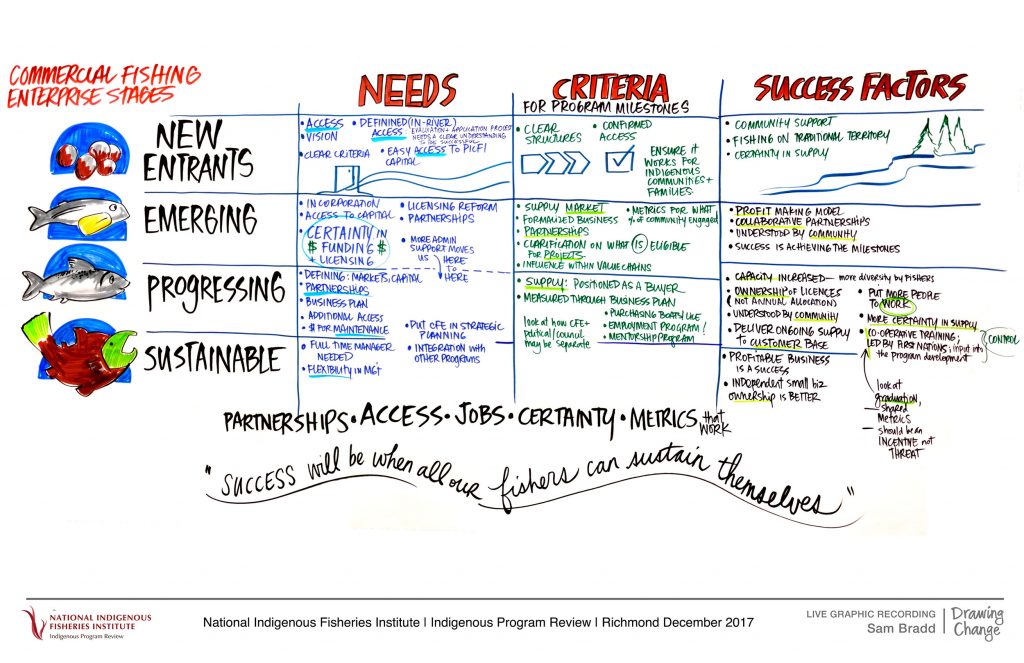 COMMERCIAL FISHING
ENTERPRISE STAGES
NEEDS
CRITERIA
FOR PROGRAM MILESTONES
SUCCESS FACTORS
NEW
ENTRANTS
• ACCESS
• VISION
• CLEAR CRITERIA
• DEFINED (IN-RIVER)
ACCESS - EVALUATION + APPLICATION PROCESS
NEEDS A CLEAR UNDERSTANDING
TO BE SUCCESSFUL
• EASY ACCESS TO PICFI
CAPITAL
• CLEAR
STRUCTURES
• CONFIRMED
ACCESS
ENSURE IT
WORKS FOR
INDIGENOUS
COMMUNITIES +
FAMILIES
• COMMUNITY SUPPORT
• FISHING ON TRADITIONAL TERRITORY
• CERTAINTY IN SUPPLY
EMERGING
• INCORPORATION
• ACCESS TO CAPITAL
• CERTAINTY IN
$ FUNDING $
+ LICENSING
• LICENSING REFORM
• PARTNERSHIPS
• MORE ADMIN
SUPPORT MOVES
US HERE
TO
HERE
• SUPPLY MARKET
• FORMALIZED BUSINESS
• PARTNERSHIPS
• CLARIFICATION ON WHAT IS ELIGIBLE
FOR PROJECTS
• INFLUENCE WITHIN VALUE CHAINS
• METRICS FOR WHAT
% OF COMMUNITY ENGAGED
• PROFIT MAKING MODEL
• COLLABORATIVE PARTNERSHIPS
• UNDERSTOOD BY COMMUNITY
• SUCCESS IS ACHIEVING THE MILESTONES
PROGRESSING
• DEFINING: MARKETS, CAPITAL
• PARTNERSHIPS
• BUSINESS PLAN
• ADDITIONAL ACCESS
• $ FOR MAINTENANCE
• SUPPLY: POSITIONED AS A BUYER
• MEASURED THROUGH BUSINESS PLAN
• PURCHASING BOAT/LIKE
• EMPLOYMENT PROGRAM/
• MENTORSHIP PROGRAM
look at how CFE +
political/council
may be separate
• CAPACITY INCREASED — more diversity by FISHERS
• OWNERSHIP OF LICENCES
(NOT ANNUAL ALLOCATIONS)
• UNDERSTOOD BY COMMUNITY
• DELIVER ONGOING SUPPLY
TO CUSTOMER BASE
• PUT MORE PEOPLE
TO WORK
• MORE CERTAINTY IN SUPPLY
• CO-OPERATIVE TRAINING;
LED BY FIRST NATIONS; input into
the program development
CONTROL
SUSTAINABLE
• FULL TIME MANAGER
NEEDED
• FLEXIBILITY IN MGT
• PUT CFE IN STRATEGIC
PLANNING
• INTEGRATION with
OTHER PROGRAMS
• PROFITABLE BUSINESS
IS A SUCCESS
• INDEPENDENT small biz
ownership is BETTER
look at
graduation,
— shared
METRICS
— should be an
INCENTIVE not
THREAT
PARTNERSHIPS • ACCESS • JOBS • CERTAINTY • METRICS that
WORK
"SUCCESS will be when all our fishers can sustain themselves"
NATIONAL INDIGENOUS
FISHERIES INSTITUTE
Indigenous Program Review
National Indigenous Fisheries Institute | Indigenous Program Review | Richmond December 2017
LIVE GRAPHIC RECORDING
Sam Bradd
Drawing
Change